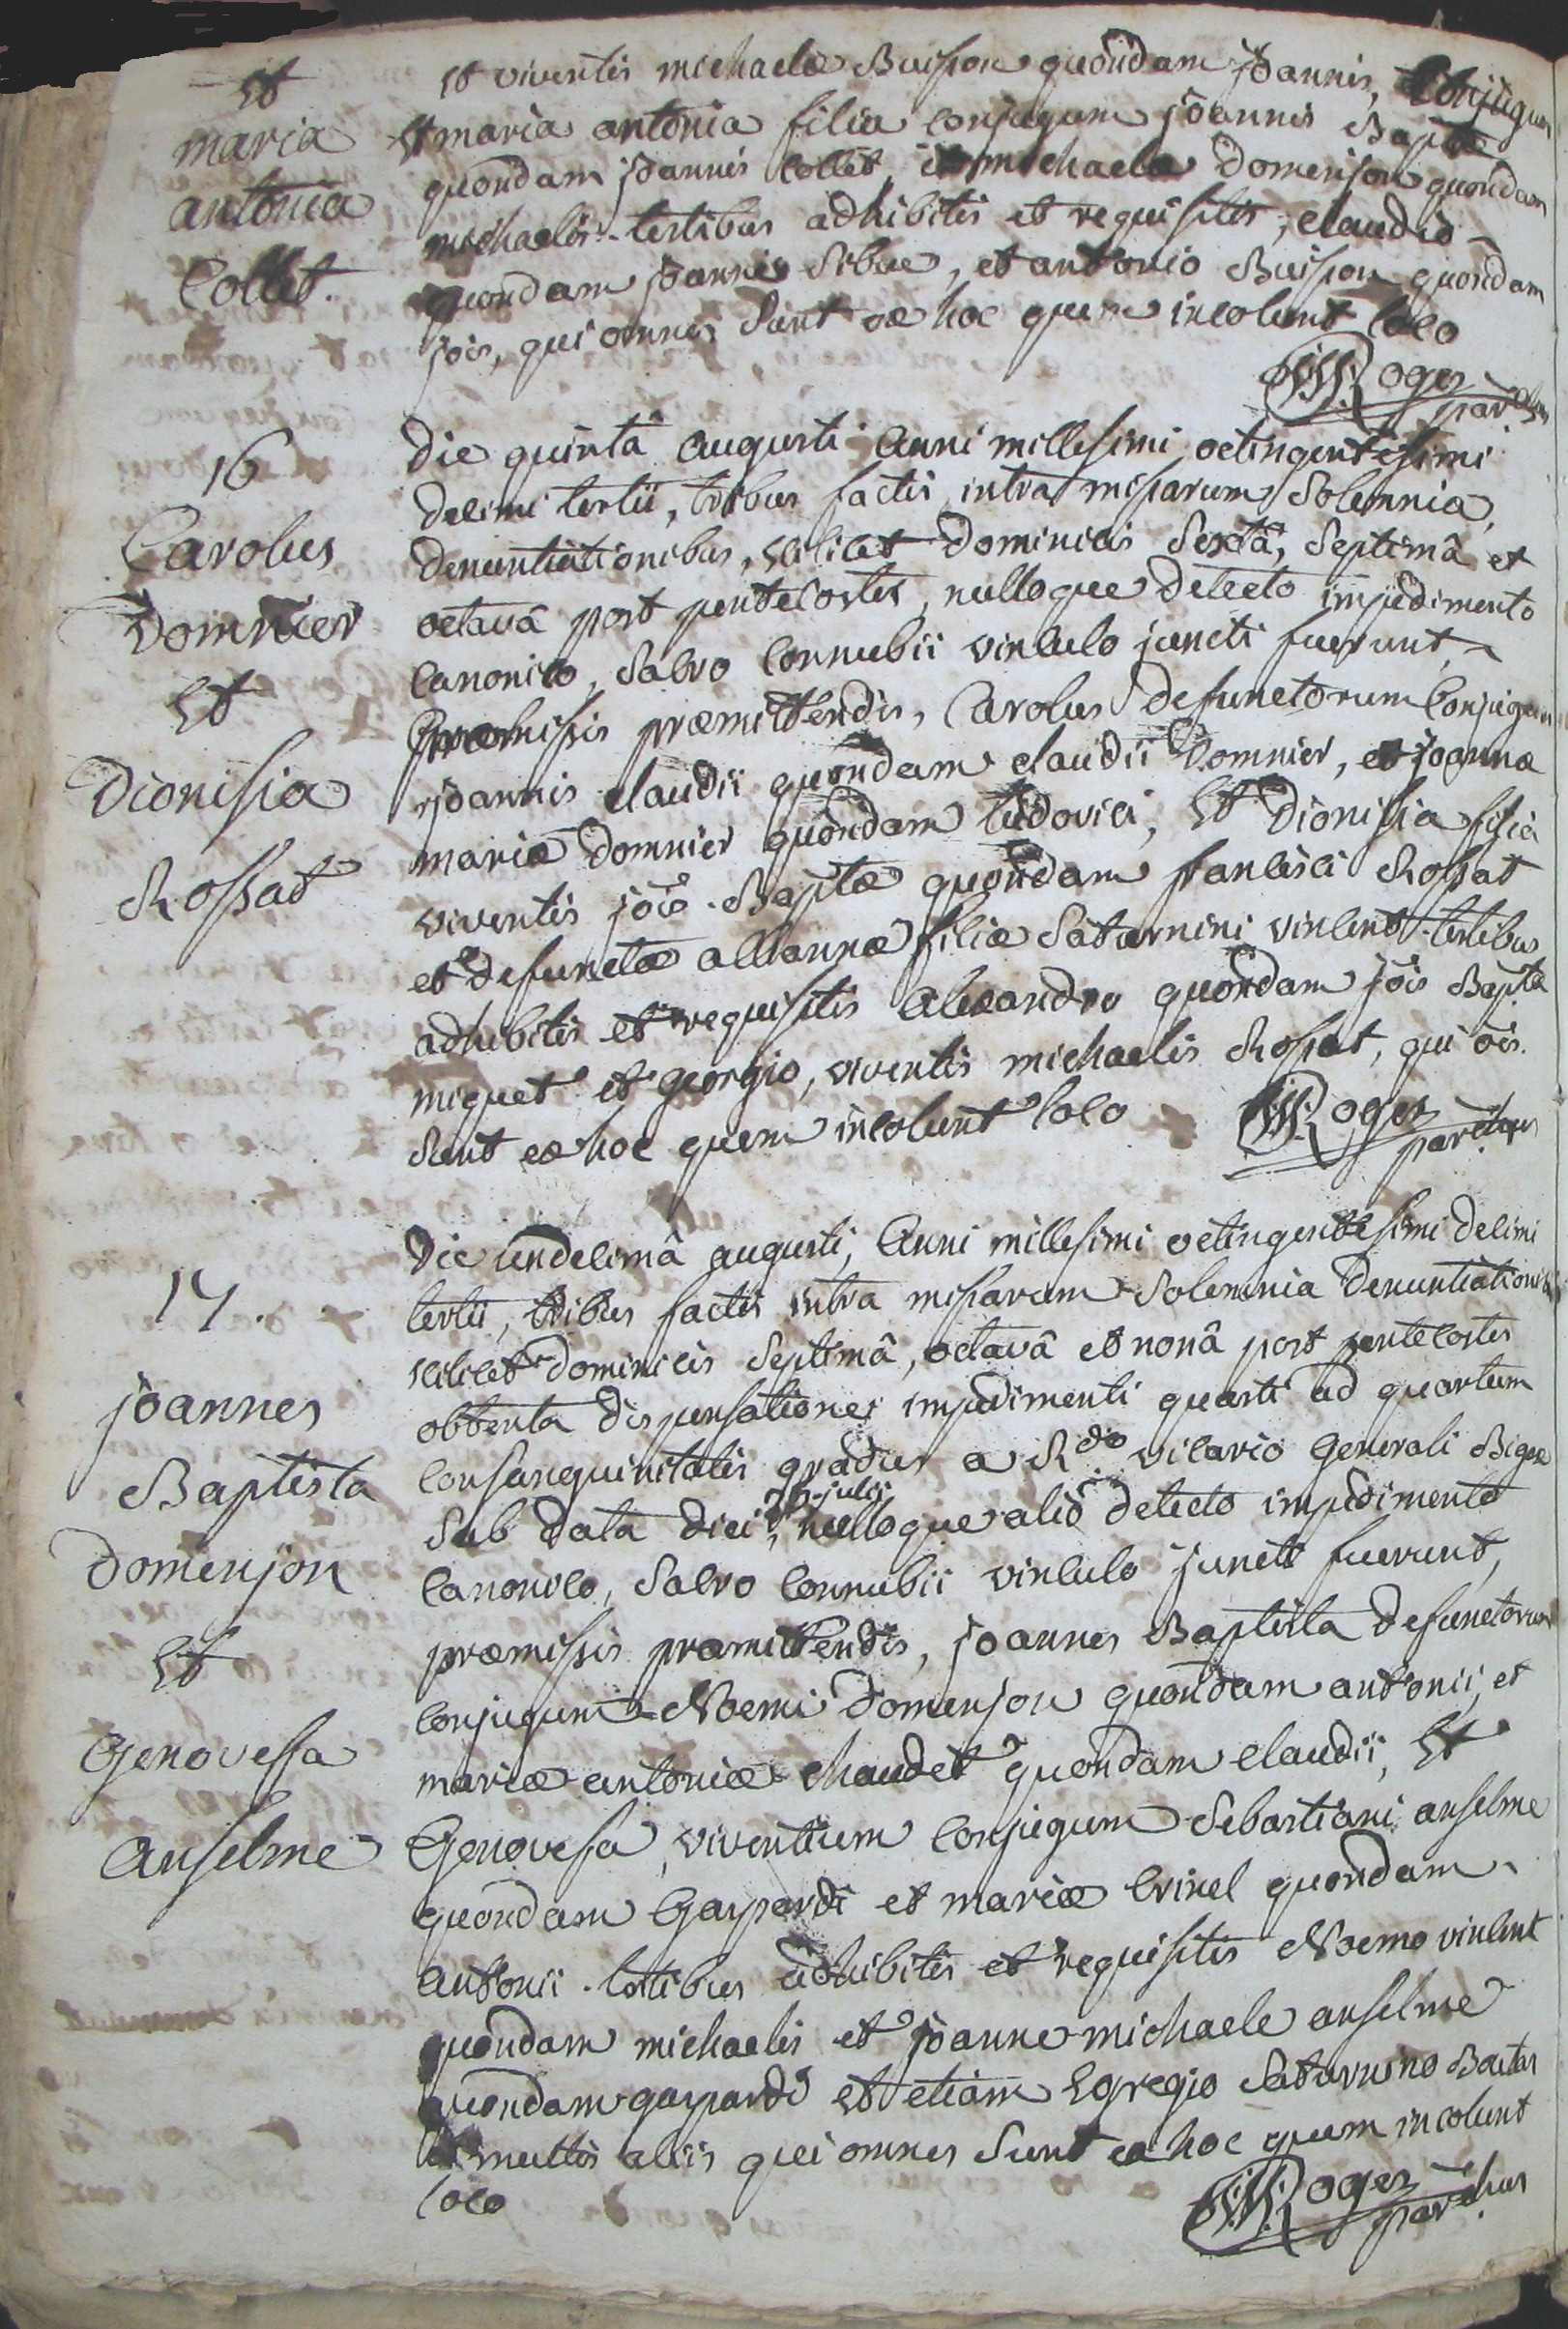 Et
maria
antonia
Collet.
et viventis michaelæ Buisson quondam joannis, Conjugum
Et maria antonia filia conjugum joannis Baptæ
quondam joannis Collet, et michaelæ Domenjon quondam
michaelis. testibus adhibitis et requisitis, claudio
quondam joannis Sibue, et antonio Buisson quondam
jois, qui omnes sunt ex hoc quem incolunt loco
Roger
parchus
16
Carolus
Domnier
Et
Dionisia
Rossat
Die quintâ augusti anni millesimi octingentesimi
decimi tertii, tribus factis intra missarum Solemnia,
denuntiationibus, scilicet Dominicis Sextâ, Septimâ et
octavâ post pentecostes, nulloque detecto impedimento
Canonico, Salvo Connubii vinculo juncti fuerunt,
præmissis præmittendis, Carolus defunctorum Conjugum
joannis claudii quondam claudii Domnier, et joannæ
mariæ Domnier quondam ludovici, Et Dionisia filia
viventis jois. Baptæ quondam francisci Rossat
et defunctæ alliannæ filiæ Saturnini vincent. testibus
adhibitis et requisitis alexandro quondam jois Baptæ
miquet et georgio, viventis michaelis Rossat, qui oes.
Sunt ex hoc quem incolunt loco
Roger
parchus
17.
joannes
Baptista
Domenjon
Et
Genovessa
Anselme
Die undecimâ augusti, Anni millesimi octingentesimi decimi
tertii, tribus factis intra missarum Solemnia Denuntiationibus
scilicet Dominicis Septimâ, octavâ et nonâ post pentecostes
obtenta dispensationes impedimenti quarti ad quartum
Consanguinitatis gradus a Rdo. vicario Generali Bigex
Sub data diei julii, nulloque alio detecto impedimento
Canonico, Salvo Connubii vinculo juncti fuerunt,
præmissis præmittendis, joannes Baptista defunctorum
conjugum Noemi Domenjon quondam antonii, et
mariæ antoniæ chaudet quondam claudii, Et
Genovefa, viventium conjugum Sebastiani anselme
quondam Gaspardi et mariæ Crinel quondam
antonii. testibus adhibitis et requisitis Noemo vincent
quondam michaelis et joanne michaele anselme
quondam gaspardi et etiam Egregio Saturnino
et multis aliis qui omnes Sunt ex hoc quem incolunt
loco
Roger
parchus